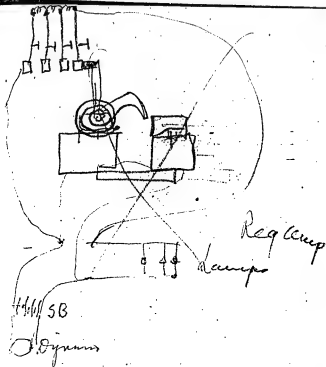 Reg lamp
Lamps
SB
Dynamo